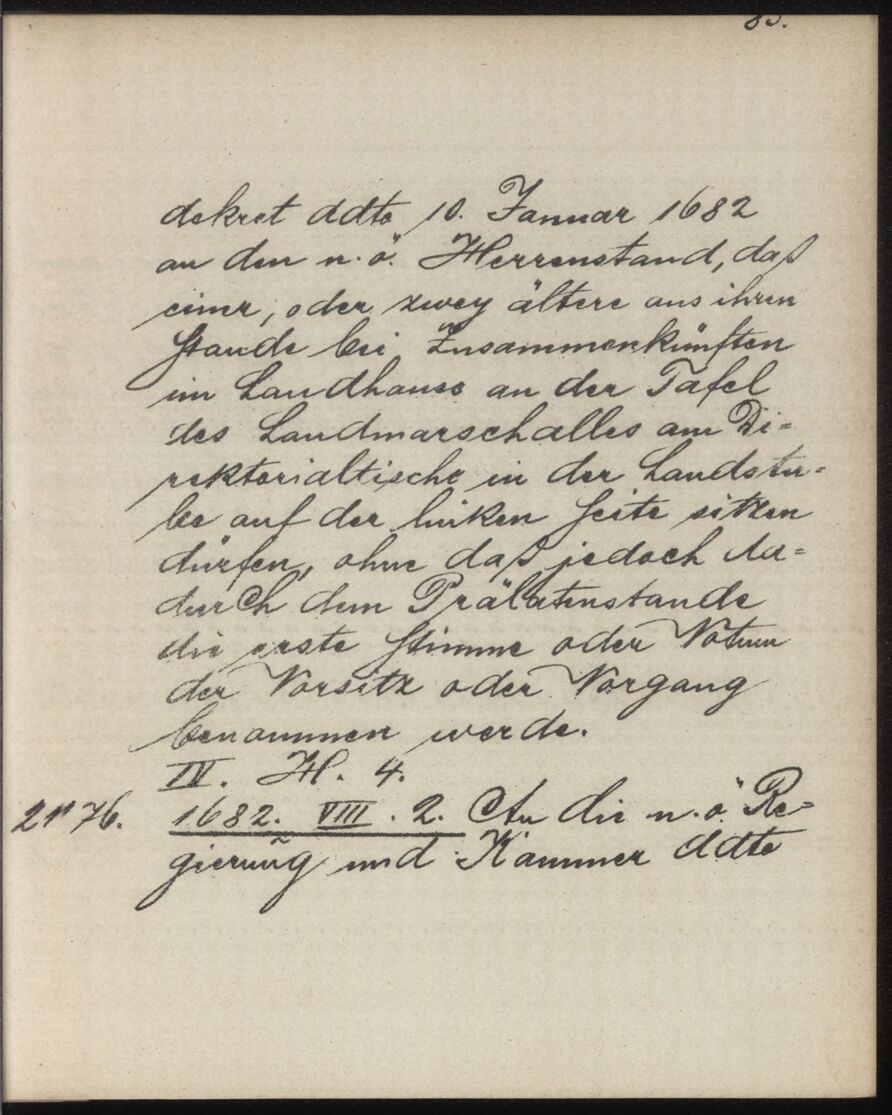 85.
dekret ddto 10. Januar 1682
an den n. ö. Herrenstand, daß
einer, oder zwey ältere aus ihren
Stande bei Zusammenkünften
im Landhause an der Tafel
des Landmarschalles am Di=
rektorialtische in der Landstu=
be auf der linken Seite sitzen
dürfen, ohne daß jedoch da=
durch dem Prälatenstande
die erste Stimme oder Votum
der Vorsitz oder Vorgang
benommen werde.
IV. H. 4.
76. 1682. VIII. 2. An die n. ö. Re=
gierung und Kammer ddto